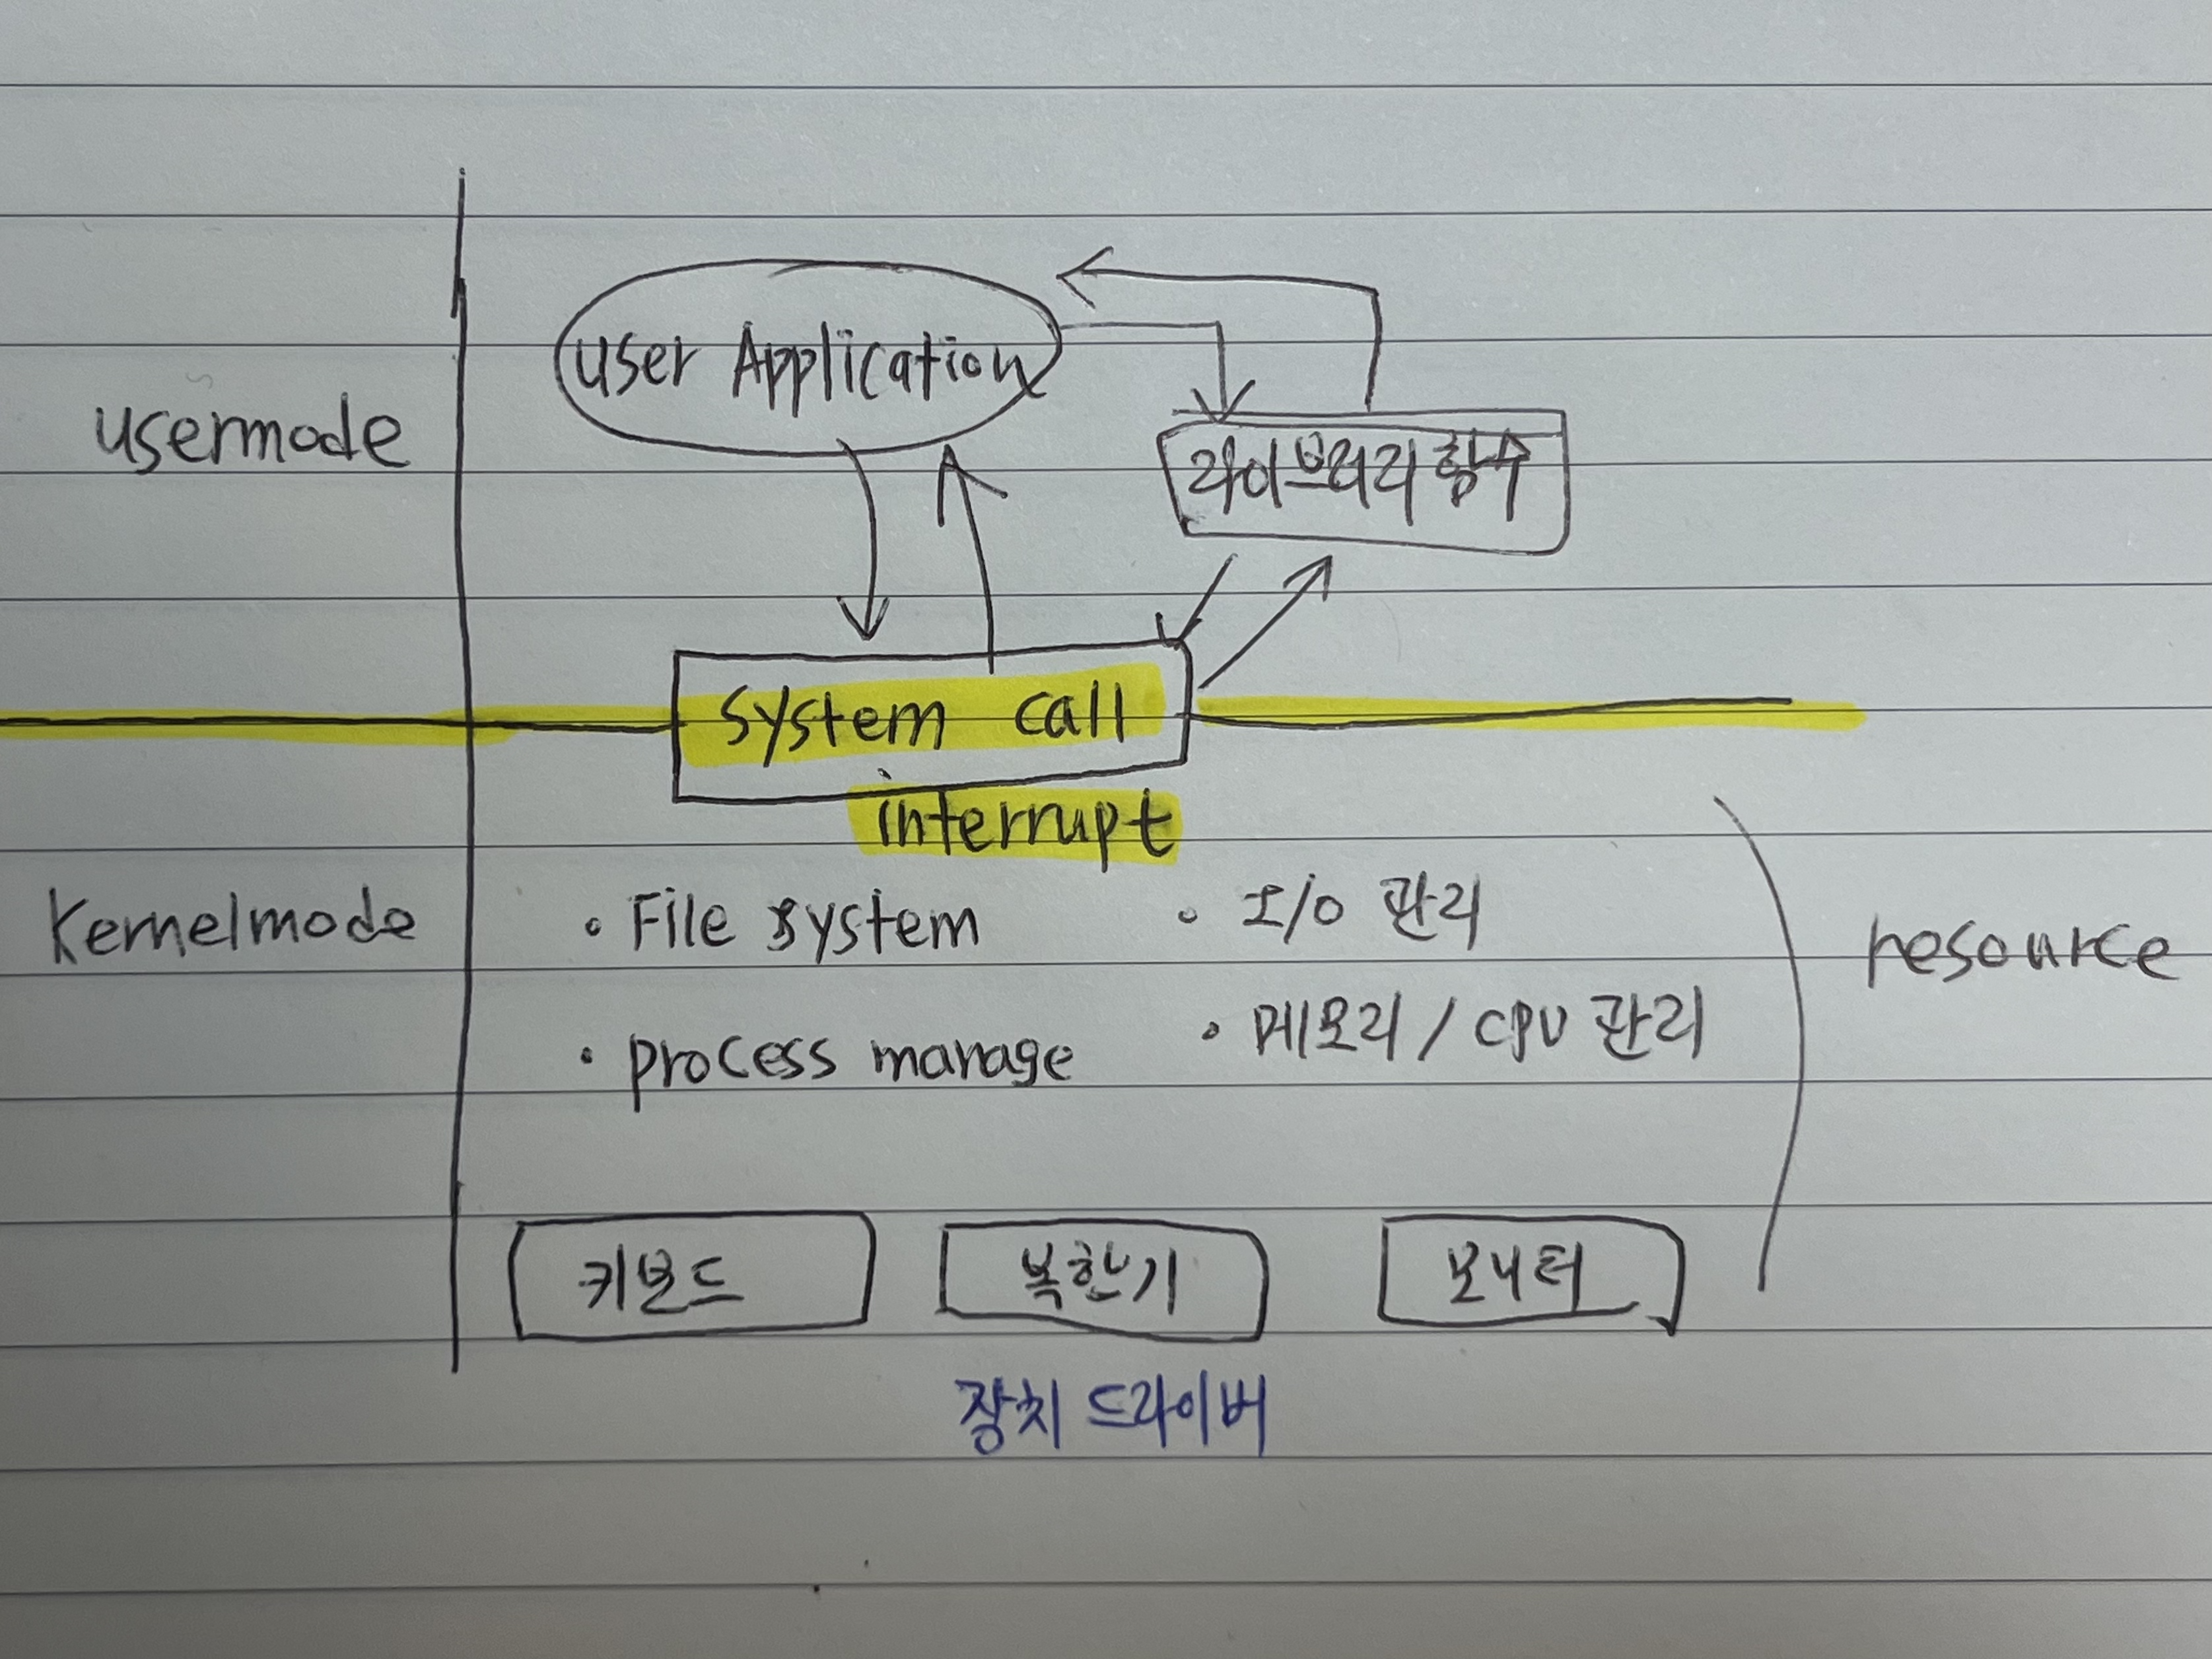 user Application
usermode
라이브러리 함수
system call
interrupt
kernelmode
• File system
• I/O 관리
resource
• process manage
• 메모리 / CPU 관리
키보드
복한기
모니터
장치 드라이버